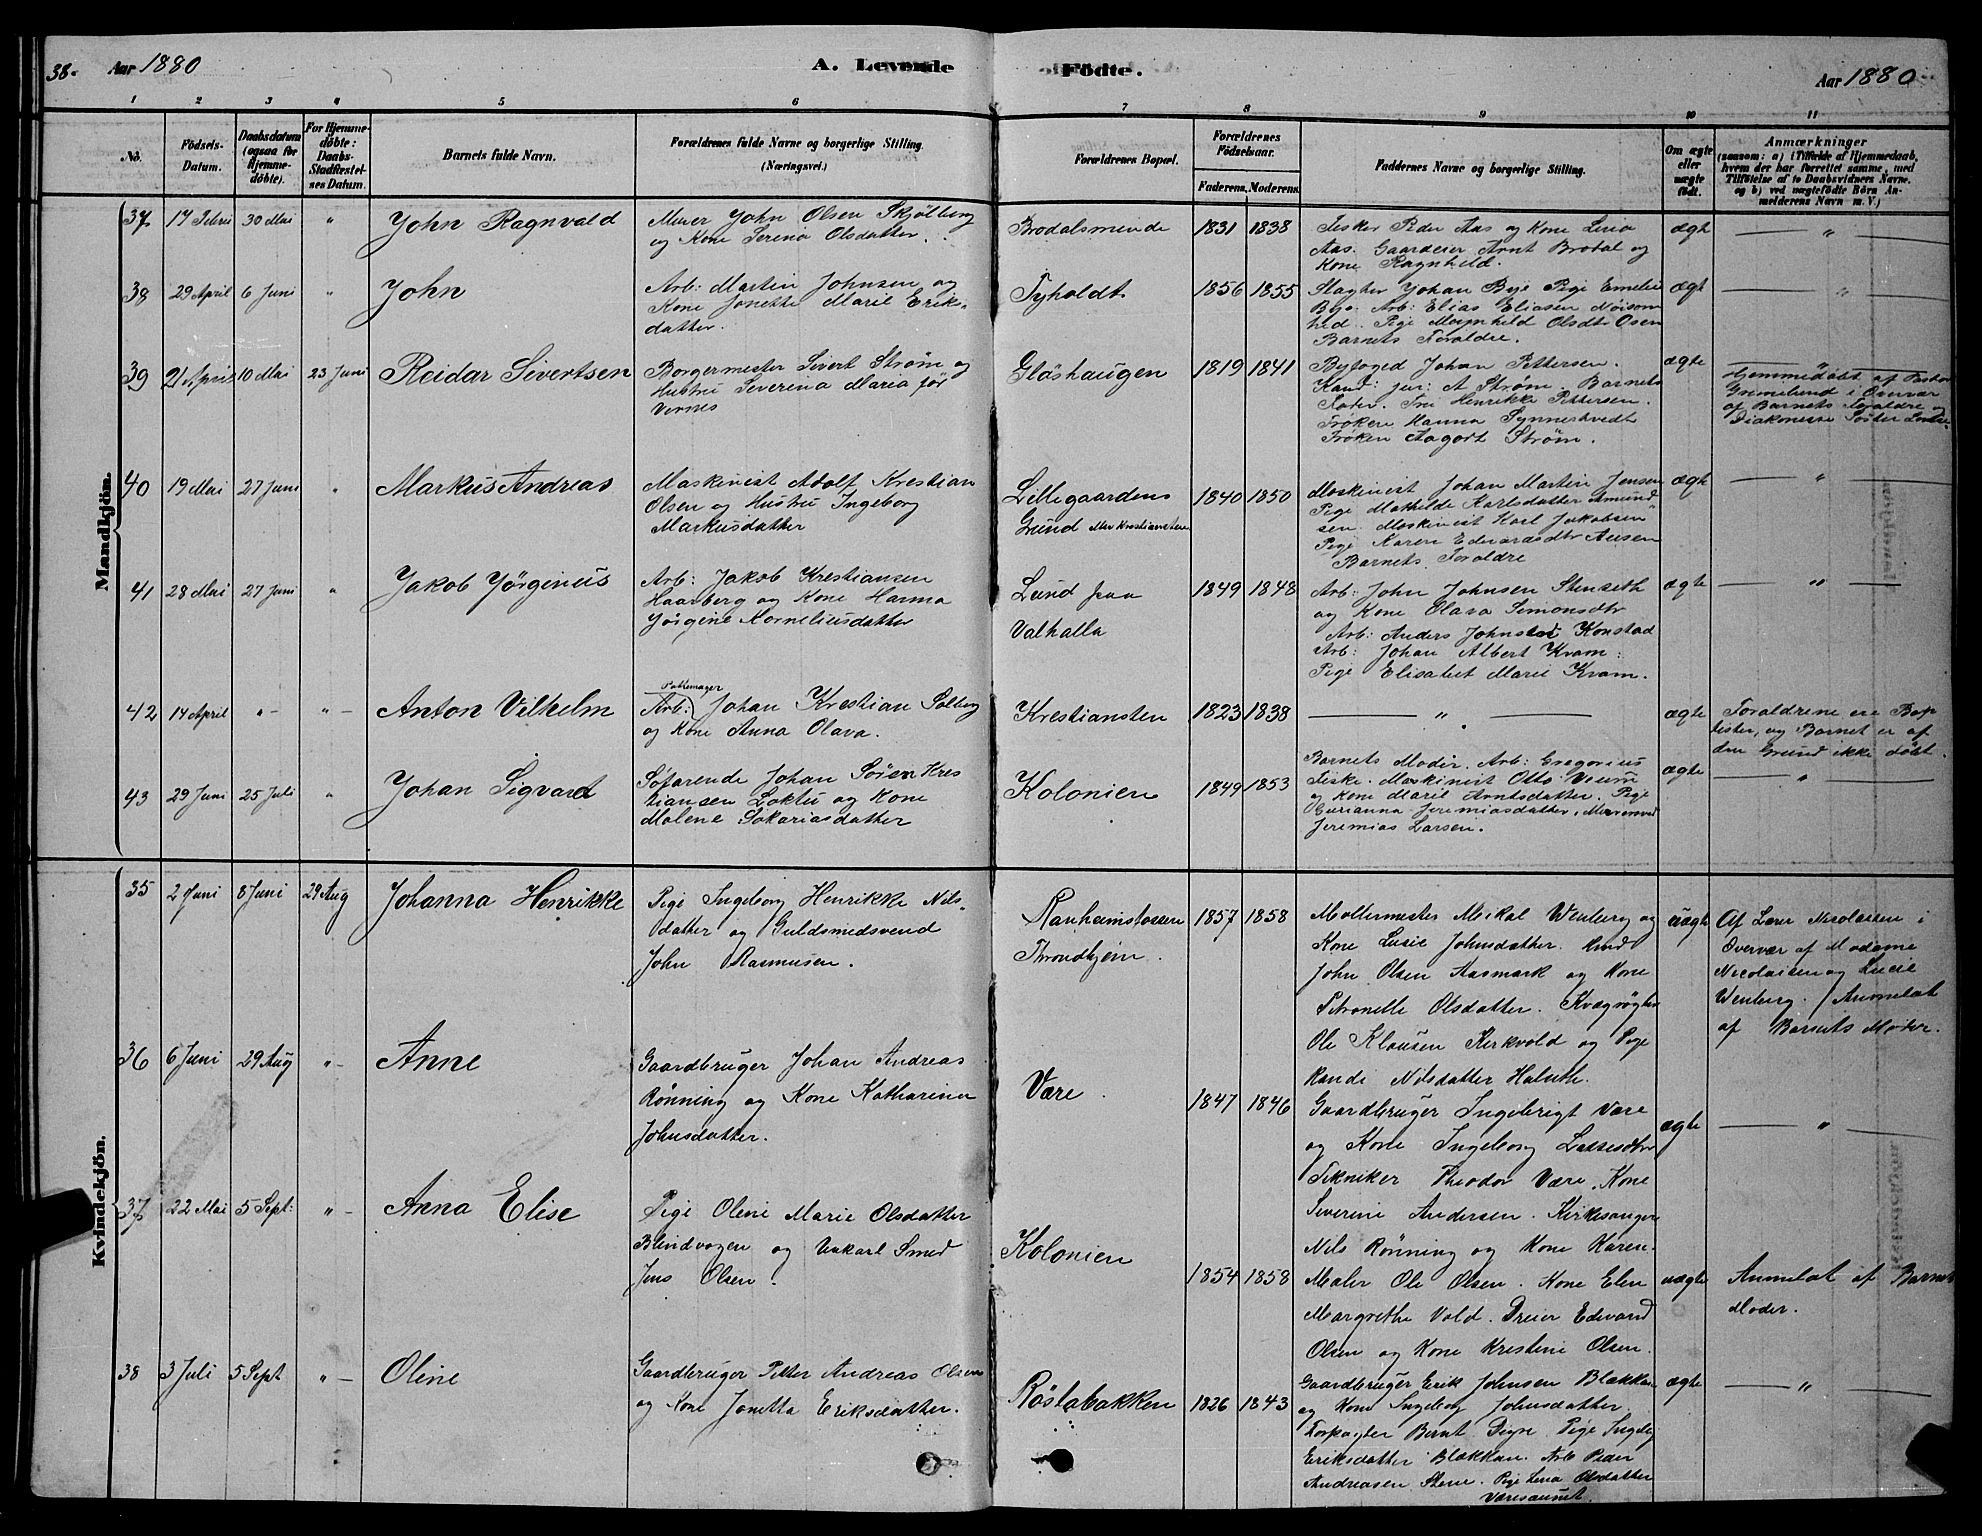 38. Aar 1880 A. Levende Födte. Aar 1880
1 2 3 4 5 6 7 8 9 10 11
No. Födsels-Datum. Daabsdatum (ogsaa for Hjemmedöbte). For Hjemmedöbte: Daabs-Stadfæstelses Datum. Barnets fulde Navn. Forældrenes fulde Navne og borgerlige Stilling. (Næringsvei.) Forældrenes Bopæl. Forældrenes Födselsaar. Faderens. Moderens. Faddernes Navne og borgerlige Stilling. Om ægte eller uægte födt. Anmærkninger (saasom: a) i Tilfælde af Hjemmedaab, hvem der har forrettet samme, med Tilföielse af to Daabsvidners Navne, og b) ved uægtefödte Börn Anmelderens Navn m. V.)
Mandkjön.
37 30 Mai " John Ragnvald
Murer John Olsen Skjölberg
og Kone Serena Olsdatter.
Brodalsminde 1831 1838
Fisker Peder Aas og Kone
Aas. Gaardeier Arnt Brodal og
Kone Ragnhild.
ægte — " —
38 29 April 6 Juni " John
Arb: Martin Johnsen og
Kone Jonette Marie Eriks-
datter.
Tyholdt 1856 1855
Slagter Johan Bye Pige Emelie
Bye. Arb: Elias Eliasen
Olsdtr Osen
Barnets Foraldre.
ægt — " —
39 21 April 10 Mai 23 Juni Reidar Sivertsen
Borgermester Sivert Ström og
Hustru Severina Maria för
Vernes
Glöshaugen 1819 1841
Byfoged Johan Pettersen.
Kand: jur: A Ström. Barnets
Fader. Henrikke Pettersen.
Fröken Hanna Synnestvedt
Fröken Aagort Ström.
ægte — " —
Hjemmedöbt af Pastor
i Overvær
af Barnets Foraldre og
Diakonesse Söster
40 19 Mai 27 Juni " Markus Andreas
Maskinist Adolf Krestian
Olsen og Hustru Ingeborg
Markusdatter
Lillegaardens
Grund 1840 1850
Maskinist Johan Martin Jensen
Pige Mathilde Karlsdatter Amund
sen. Maskinist Karl Jakobsen
Pige Karen Edvardsdtr
Barnets Foraldre
ægt — " —
41 28 Mai 27 Juni " Jakob Jörginus
Arb: Jakob Krestiansen
Haarberg og Kone Hanna
Jörgine Korneliusdatter
Lund paa
Valhalla
1849 1848
Arb: John Johnsen Stenseth
og Kone Olava Simonsdtr
Arb: Anders Konstad
Arb: Johan Albert Kvam:
Pige Elisabet Marie Kvam.
ægte — " —
42 14 April " — " — Anton Vilhelm
Pottemager
Arb: Johan Krestian Solberg
og Kone Anna Olava.
Krestiansten 1823 1838 — " — ægte
Foraldrene ere Bap
tister, og Barnet er af
den Grund ikke döbt.
43 29 Juni 25 Juli " Johan Sigvard
Söfarende Johan Sören Kres
tiansen Loktu og Kone
Malene Sakariasdatter
Kolonien 1849 1853
Barnets Moder. Arb: Gregorius
Fiske. Maskinist Otto
og Kone Marit Arntsdatter. Pige
Jeremiasdatter,
Jeremias Larsen.
ægte — " —
Kvindekjön.
35 2 Juni 8 Juni 29 Aug Johanna Henrikke
Pige Ingeborg Henrikke Nils-
datter og Guldsmedsvend
John Rasmusen.
Throndhjem.
1857 1858
Möllermester Mikal Wenberg og
Kone Lusie Johnsdatter.
John Olsen Aasmark og Kone
Petronelle Olsdatter.
Ole Klausen Kirkvold og Pige
Randi Nilsdatter
uægte
Af Nicolaisen i
Overvær af Madame
Nicolaisen og Lucie
Wenberg. / Anmeldt
af Barnets Moder.
36 6 Juni 29 Aug " — Anne
Gaardbruger Johan Andreas
Rönning og Kone Katharina
Johnsdatter.
Være. 1847 1846
Gaardbruger Ingebrigt Være
og Kone Ingeborg
Tekniker Theodor Være. Kone
Severine Andersen. Kirkesanger
Nils Rönning og Kone Karen.
ægte — " —
37 22 Mai 5 Sept: " — Anna Elise
Pige Oline Marie Olsdatter
og Smed
Jens Olsen.
Kolonien
1854 1858
Maler Ole Olsen. Kone Elen
Margrethe Vold. Dreier Edvard
Olsen og Kone Kristine Olsen.
uægte
Anmeldt af Barnets
Moder.
38 3 Juli 5 Sept " — Oline
Gaardbruger Petter Andreas Olsen
og Kone Jonetta Eriksdatter.
Röstabakken 1826 1843
Gaardbruger Erik Johnsen Blakkan
og Kone Ingeborg Johnsdatter.
Forpagter Bernt Digre. Pige Ingeborg
Eriksdatter Blakkan. Arb Peder
Andreasen Stene. Pige Lena Olsdatter
Væresaunet.
ægte — " —